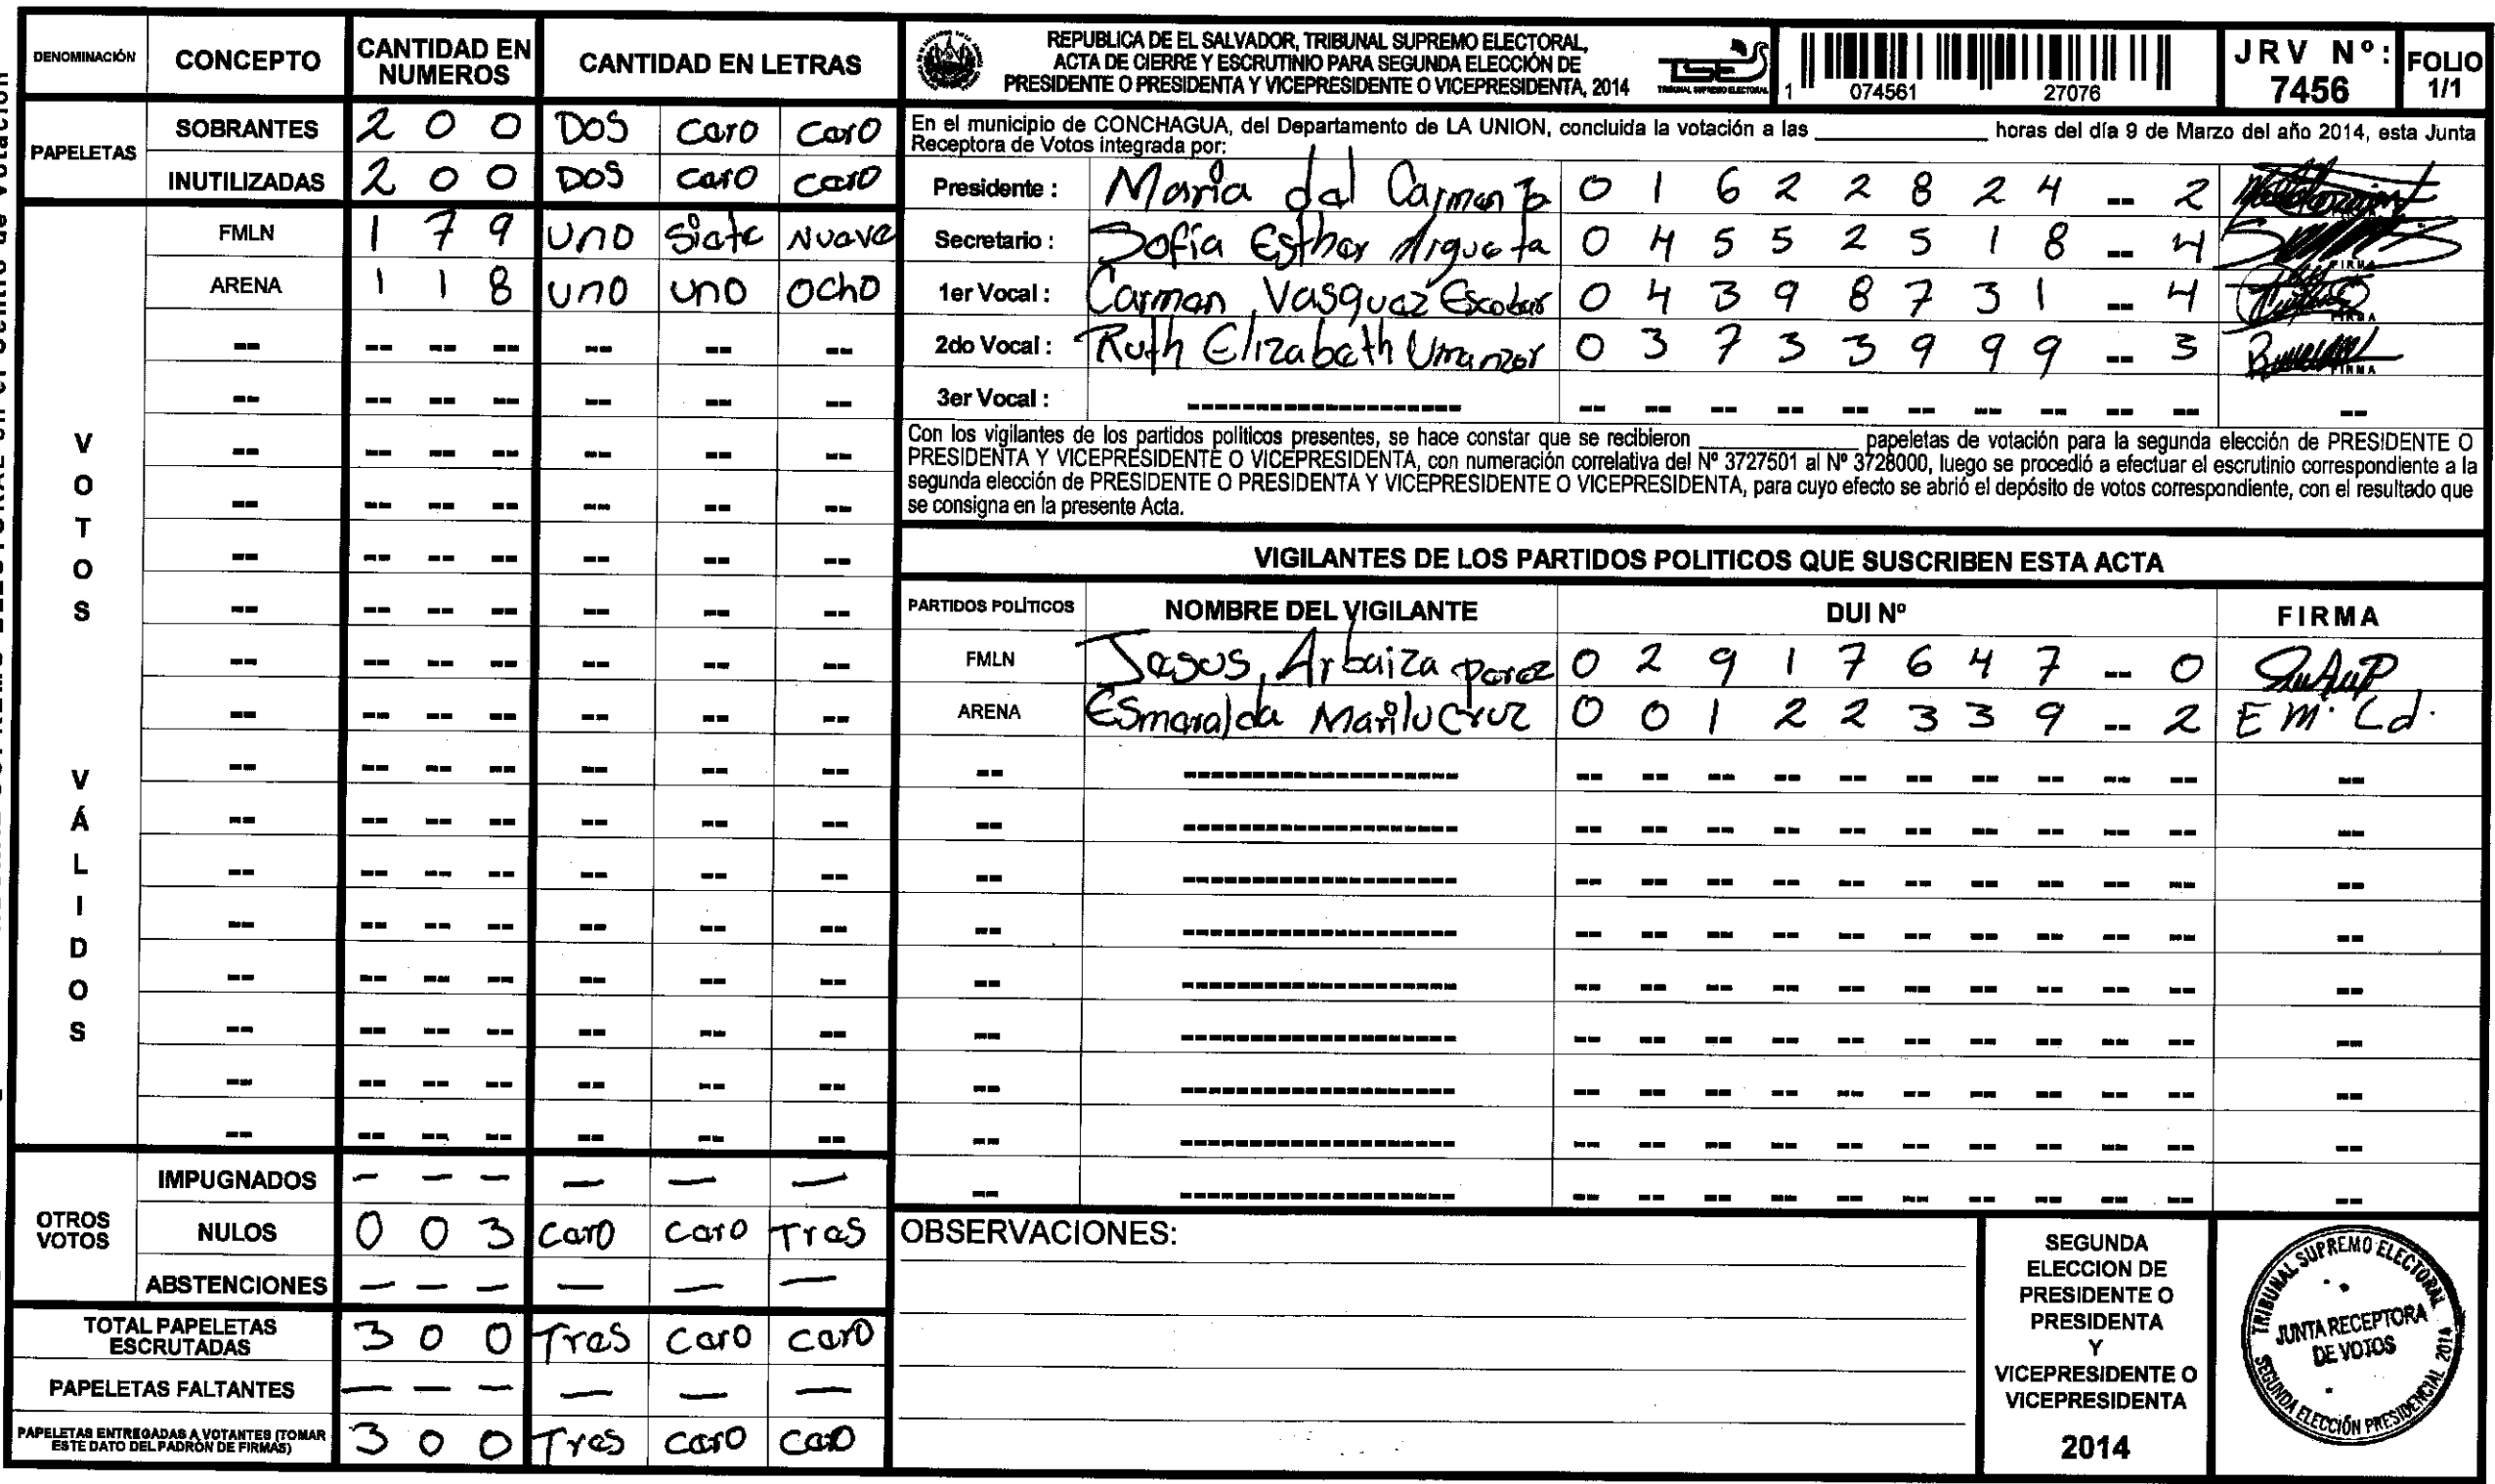 DENOMINACIÓN CONCEPTO CANTIDAD EN NUMEROS CANTIDAD EN LETRAS
PAPELETAS
SOBRANTES 2 0 0 DOS cero cero
INUTILIZADAS 2 0 0 DOS cero cero
VOTOS VÁLIDOS
FMLN 1 7 9 UNO Siete Nueve
ARENA 1 1 8 UNO UNO OChO
OTROS VOTOS
IMPUGNADOS — — — — — —
NULOS 0 0 3 cero cero Tres
ABSTENCIONES — — — — — —
TOTAL PAPELETAS ESCRUTADAS 3 0 0 Tres cero cero
PAPELETAS FALTANTES — — — — — —
PAPELETAS ENTREGADAS A VOTANTES (TOMAR ESTE DATO DEL PADRÓN DE FIRMAS) 3 0 0 Tres cero cero
REPUBLICA DE EL SALVADOR, TRIBUNAL SUPREMO ELECTORAL,
ACTA DE CIERRE Y ESCRUTINIO PARA SEGUNDA ELECCIÓN DE
PRESIDENTE O PRESIDENTA Y VICEPRESIDENTE O VICEPRESIDENTA, 2014
TSE
TRIBUNAL SUPREMO ELECTORAL
1 074561 27076
JRV Nº: 7456
FOLIO 1/1
En el municipio de CONCHAGUA, del Departamento de LA UNION, concluida la votación a las ____ horas del día 9 de Marzo del año 2014, esta Junta
Receptora de Votos integrada por:
Presidente : Maria del Carmen 0 1 6 2 2 8 2 4 -- 2
Secretario : Sofía Esther Argueta 0 4 5 5 2 5 1 8 -- 4 FIRMA
1er Vocal : Carmen Vasquez Escobar 0 4 3 9 8 7 3 1 -- 4 FIRMA
2do Vocal : Ruth Elizabeth Umanzor 0 3 7 3 3 9 9 9 -- 3 FIRMA
3er Vocal :
Con los vigilantes de los partidos políticos presentes, se hace constar que se recibieron ____ papeletas de votación para la segunda elección de PRESIDENTE O
PRESIDENTA Y VICEPRESIDENTE O VICEPRESIDENTA, con numeración correlativa del Nº 3727501 al Nº 3728000, luego se procedió a efectuar el escrutinio correspondiente a la
segunda elección de PRESIDENTE O PRESIDENTA Y VICEPRESIDENTE O VICEPRESIDENTA, para cuyo efecto se abrió el depósito de votos correspondiente, con el resultado que
se consigna en la presente Acta.
VIGILANTES DE LOS PARTIDOS POLITICOS QUE SUSCRIBEN ESTA ACTA
PARTIDOS POLÍTICOS NOMBRE DEL VIGILANTE DUI Nº FIRMA
FMLN Jesus, Arbaiza perez 0 2 9 1 7 6 4 7 -- 0
ARENA Esmeralda Marilu Cruz 0 0 1 2 2 3 3 9 -- 2 E M. Cd.
OBSERVACIONES:
SEGUNDA
ELECCION DE
PRESIDENTE O
PRESIDENTA
Y
VICEPRESIDENTE O
VICEPRESIDENTA
2014
TRIBUNAL SUPREMO ELECTORAL
JUNTA RECEPTORA
DE VOTOS
SEGUNDA ELECCIÓN PRESIDENCIAL 2014